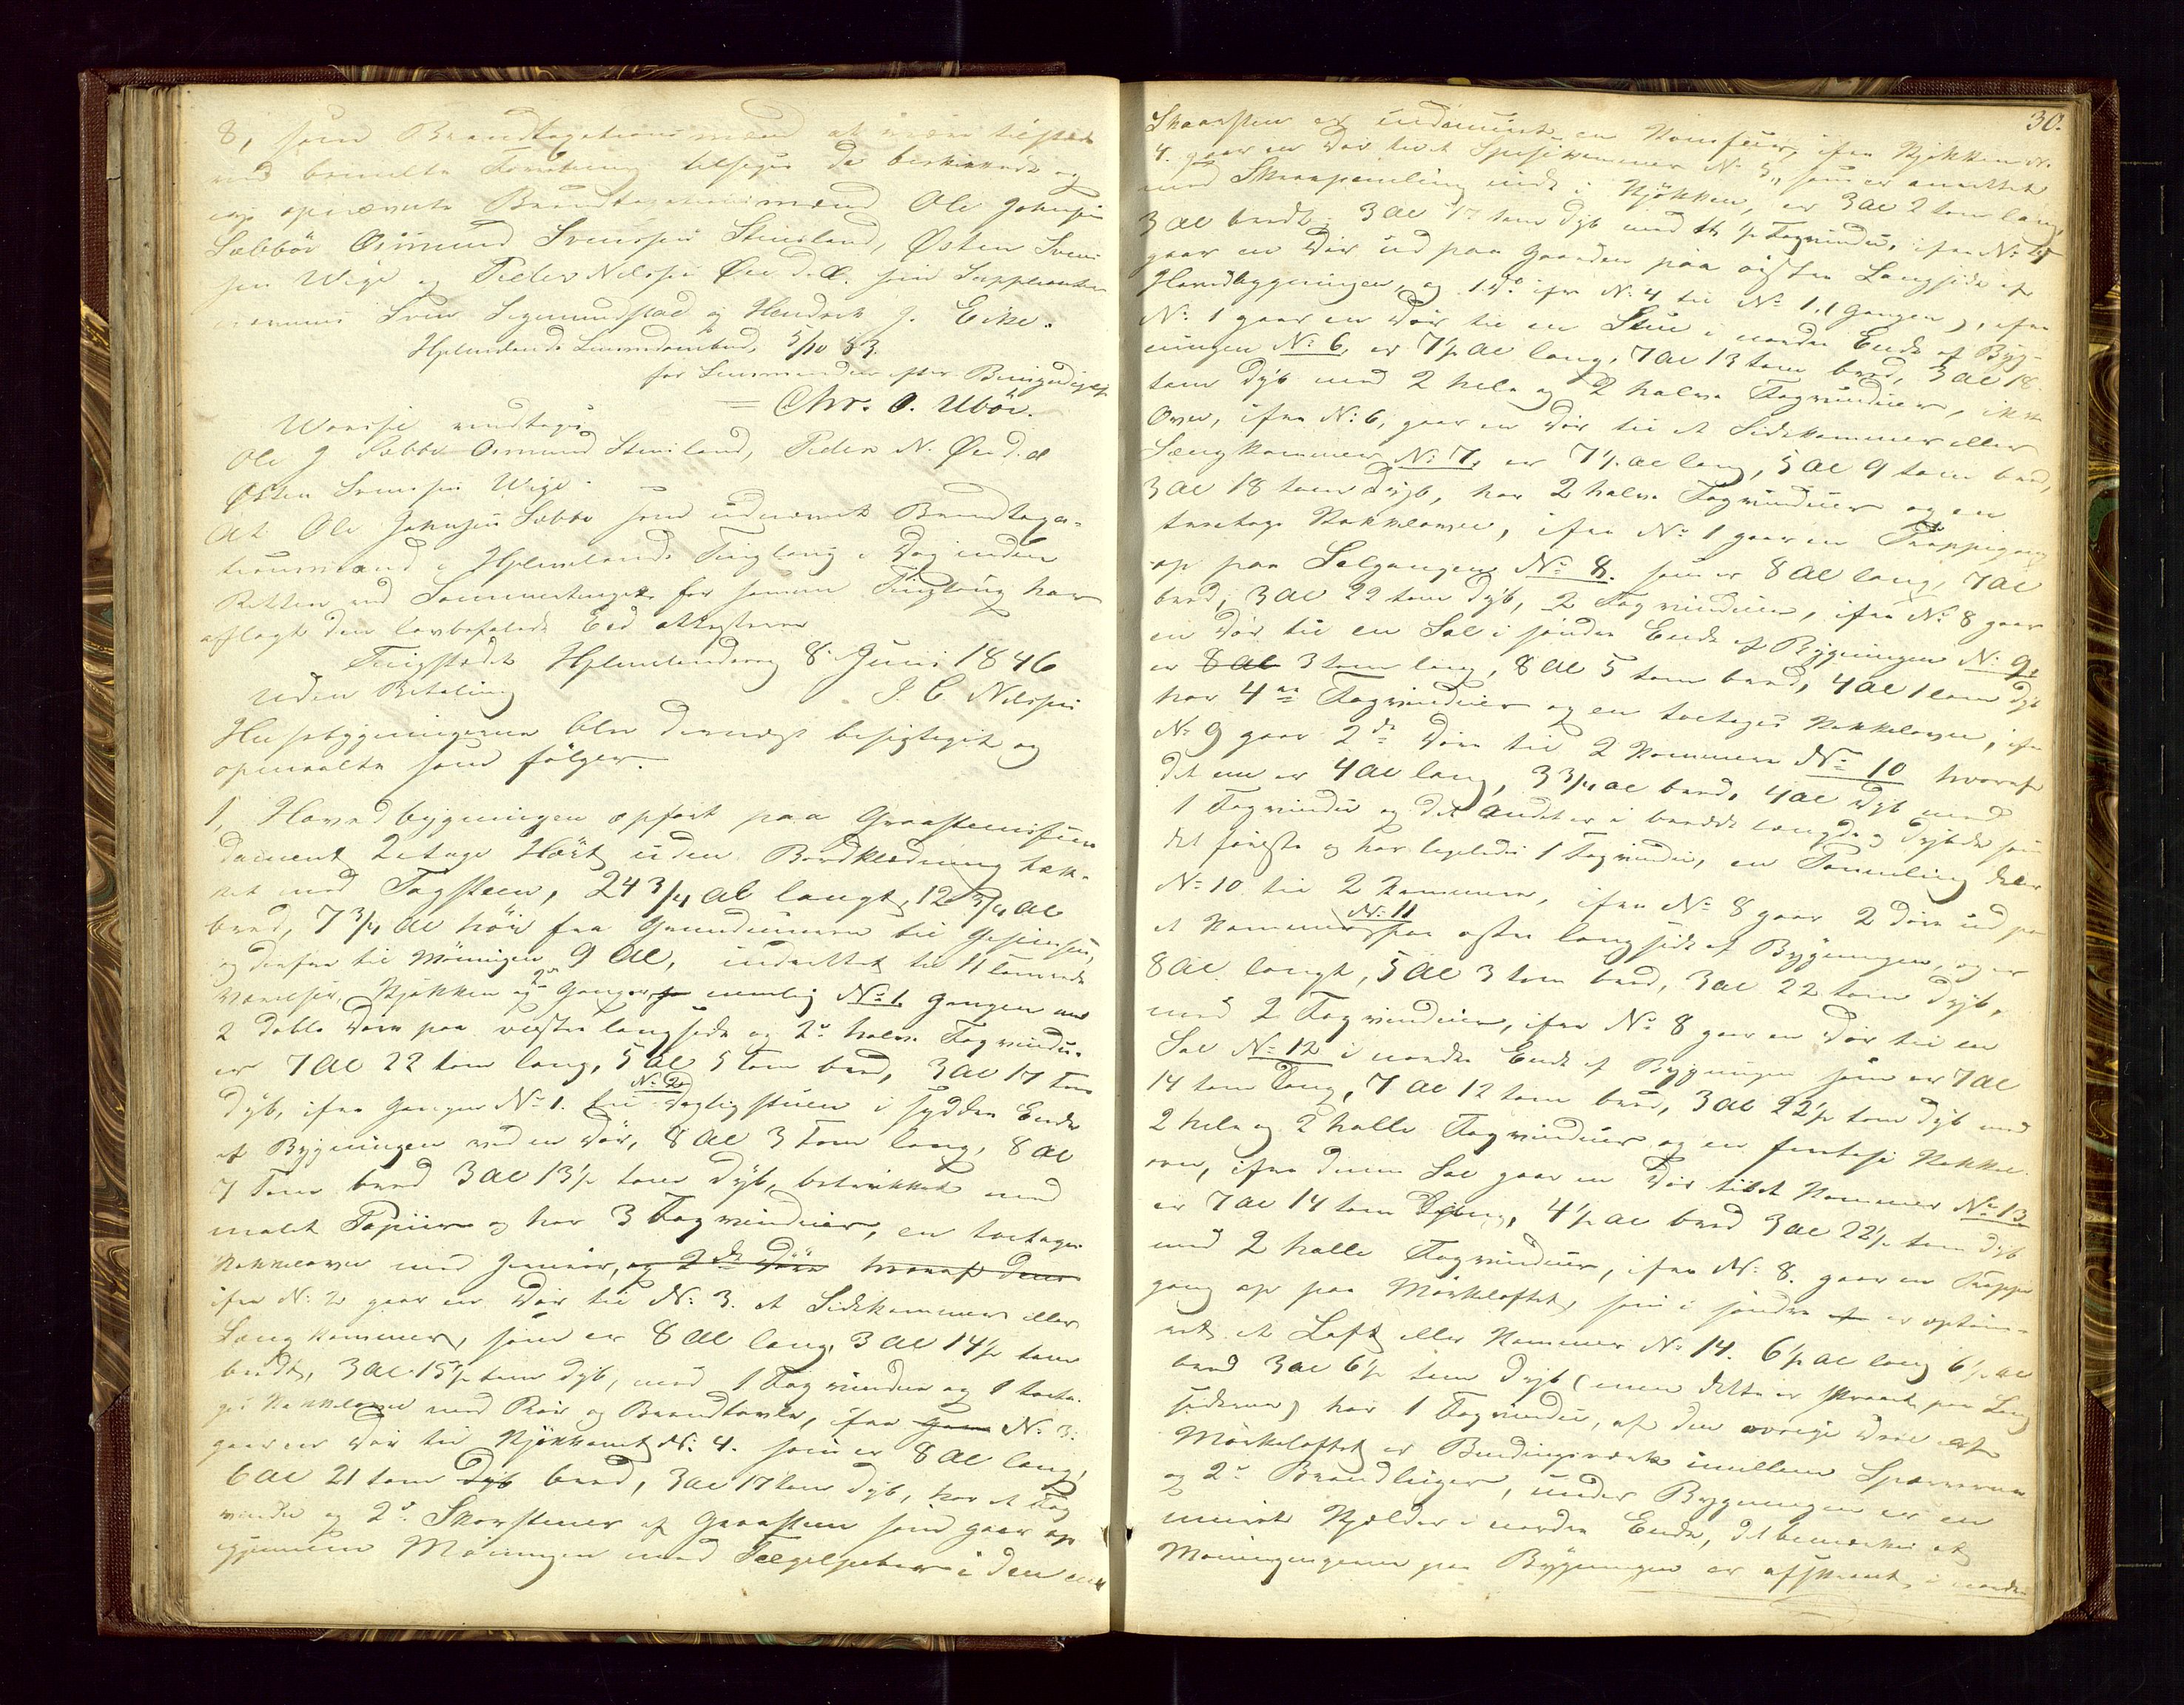 8, som Brandtaxationsmænd at være tilstæde
ved bemelte Forretning tilsiges de beskikkede og
opnævnte Brandtaxationsmænd Ole Johnsen
Sæbbøe Osmund Svensen Steinsland, Østen Svend
sen Wige og Peder Nilssen Øen d. Æ. som Supplianter
Sven Sigmundstad og Hendrik J. Eike.
Hjelmelands Lensmandsembed, 5/10 53.
for Lensmanden efter Bemyndigelse
Chr. O. Ubøe.
Warsse modtaget
Ole J Sæbbe Osmund Steinsland, Peder N. Øen d. æ
Østen Svensen Wige.
At Ole Johnsen Sæbbe som udnævnt Brandtaxa-
tionsmand i Hjelmelands Tinglaug i Dag inden
Retten ved Sommertinget for samme Tinglaug har
aflagt den lovbefalede Eed attesteres
Tingstedet Hjelmelandsvaag 8. Juni 1846
uden Betaling J. C. Nilssen
Husebygningerne blev dernæst besigtiget og
opmaalte som følger.
1, Hovedbygningen opført paa Graasteensfun
dament 2 etage Høit uden Bordklædning tæk-
ket med Tagsteen, 24 3/4 Al langt, 12 3/4 Al
bred, 7 3/4 Al høi fra Grundmuren til Gesimsen,
og derfra til Mönningen 9 Al, indrettet til 11 tømrede
Værelser, Kjøkken og 2de Gange nemlig No 1 Gangen med
2 doble Døre paa vestre langside og 2de halve Fag vindu-
er 7 Al 22 tom lang, 5 Al 5 Tom bred, 3 Al 17 Tom
dyb, ifra Gangen No 1. til No 2 Dagligstuen i sydden Ende
af Bygningen ved en Dør, 8 Al 3 Tom lang, 8 Al
7 Tom bred 3 Al 13 1/2 tom dyb, betrukket med
malet Papiir og har 3 Fag vinduer, en toetages
Kakkelovn med og 2de Døre hvoraf denne
ifra No 2 gaar en Dør til No 3. et Sidekammer eller
Sængkammer, som er 8 Al lang, 3 Al 14 1/2 tom
bredt, 3 Al 15 1/2 tom dyb, med 1 Fag vinduer og 1 toeta-
ges Kakkelovn med Rör og Brandtavle, ifra No 3.
gaar en Dør til Kjøkkenet No 4. som er 8 Al lang,
6 Al 21 tom dyb bred, 3 Al 17 tom dyb, har et Fag
vindue og 2de Skorstener af Graasteen som gaar op
gjennem Möningen med Tægelpiber i den ene
30.
Skorsteen er indmuret en Komfuur, ifra Kjøkken No
4. gaar en Dør til et Spisekammer No 5, som er anrettet
med Skraapaneling inde i Kjøkken, er 3 Al 2 tom lang,
3 Al bredt, 3 Al 17 tom dyb med 1/2 Fagvindue, ifra No 4
gaar en Dør ud paa Gaarden paa østre Langside af
Hovedbygningen, og 1 do ifra No 4 til No 1, (Gangen), ifra
No 1 gaar en Dør til en Stue i nordre Ende af Byg-
ningen No 6, er 7 1/2 Al lang, 7 Al 13 tom bred, 3 Al 18
tom dyb med 2 hele og 2 halve Fagvinduer, ikke
Oven, ifra No 6, gaar en Dør til et Sidekammer eller
Sængkammer No 7, er 7 1/2 Al lang, 5 Al 9 tom bred,
3 Al 18 tom dyb, har 2 halve Fagvinduer og en
toetages Kakkelovn, ifra No 1 gaar en Trappegang
op paa Salgangen No 8. som er 8 Al lang, 7 Al
bred, 3 Al 22 tom dyb, 2 Fag vinduer, ifra No 8 gaar
en Dør til en Sal i søndre Ende af Bygningen No 9,
er 8 Al 3 tom lang, 8 Al 5 tom bred, 4 Al 1 tom dyb
har 4re Fagvinduer og en toetages Kakkelovn, ifra
No 9 gaar 2de Döre til 2 Kammere No 10 hvoraf
det ene er 4 Al lang, 3 3/4 Al bred, 4 Al dyb med
1 Fag vindue og det andet er i bredde længde og dybde som
det første og har ligeledes 1 Fagvindue, en Panneling deler
No 10 til 2 Kammere, ifra No 8 gaar 2 Döre ud paa
et Kammer No 11 paa østre langside af Bygningen, og er
8 Al langt, 5 Al 3 tom bred, 3 Al 22 tom dyb,
med 2 Fag vinduer, ifra No 8 gaar en Dör til en
Sal No 12 i nordre Ende af Bygningen som er 7 Al
14 tom lang, 7 Al 12 tom bred, 3 Al 22 1/2 tom dyb med
2 hele og 2 halle Fagvinduer og en Kakkel
ovn, ifra denne Sal gaar en Dör til et Kammer No 13
er 7 Al 14 tom lang, 4 1/2 Al bred 3 Al 22 1/2 tom dyb
med 2 halle Fagvinduer, ifra No 8. gaar en Trappe
gang op paa Mörkeloftet, som i søndre af er optöm-
ret et Loft eller Kammer No 14. 6 1/2 Al lang 6 1/2 Al
bred 3 Al 6 1/2 tom dyb (men dette er skraat paa Lang
siderne) har 1 Fagvindue, af den øvrige Deel af
Mörkeloftet er Bindingsværk imellem Sperrerne
og 2de Brandluger, under Bygningen er en
muret Kjelder i nordre Ende, det bemærkes at
Möningerne paa Bygningen er afskaaret i nordre